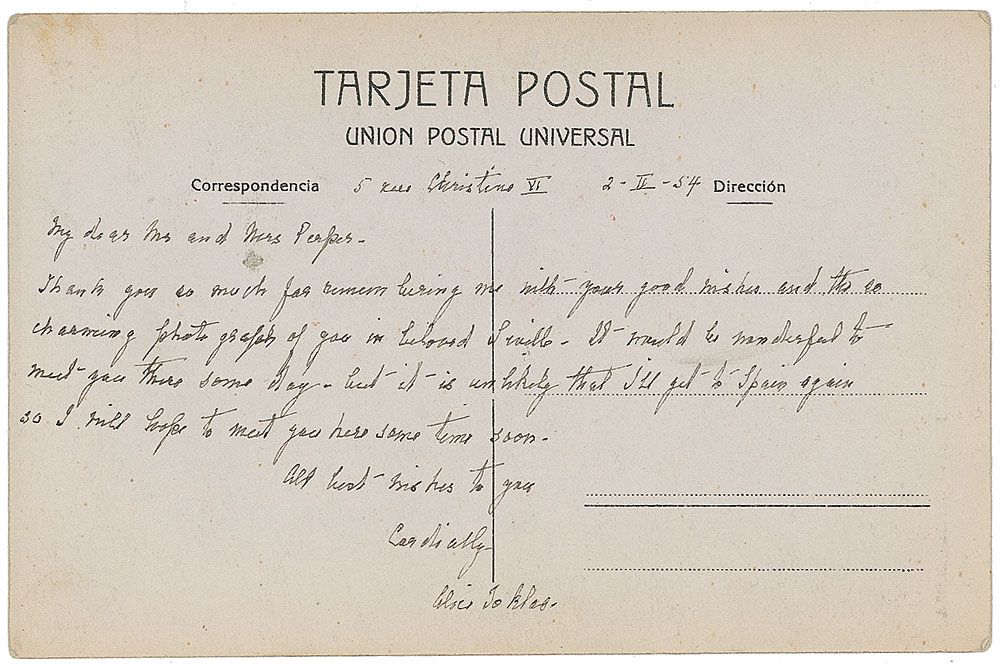 TARJETA POSTAL
UNION POSTAL UNIVERSAL
Correspondencia 5 rue Christine VI 2-II-54 Dirección
My dear Mr and Mrs Perper-
Thank you so much for remembering me with your good wishes and the so
charming photographs of you in beloved Seville- It would be wonderful to
meet you there some day- but it is unlikely that I'll get to Spain again
so I will hope to meet you here some time soon-
All best wishes to you
Cordially-
Alice Toklas-